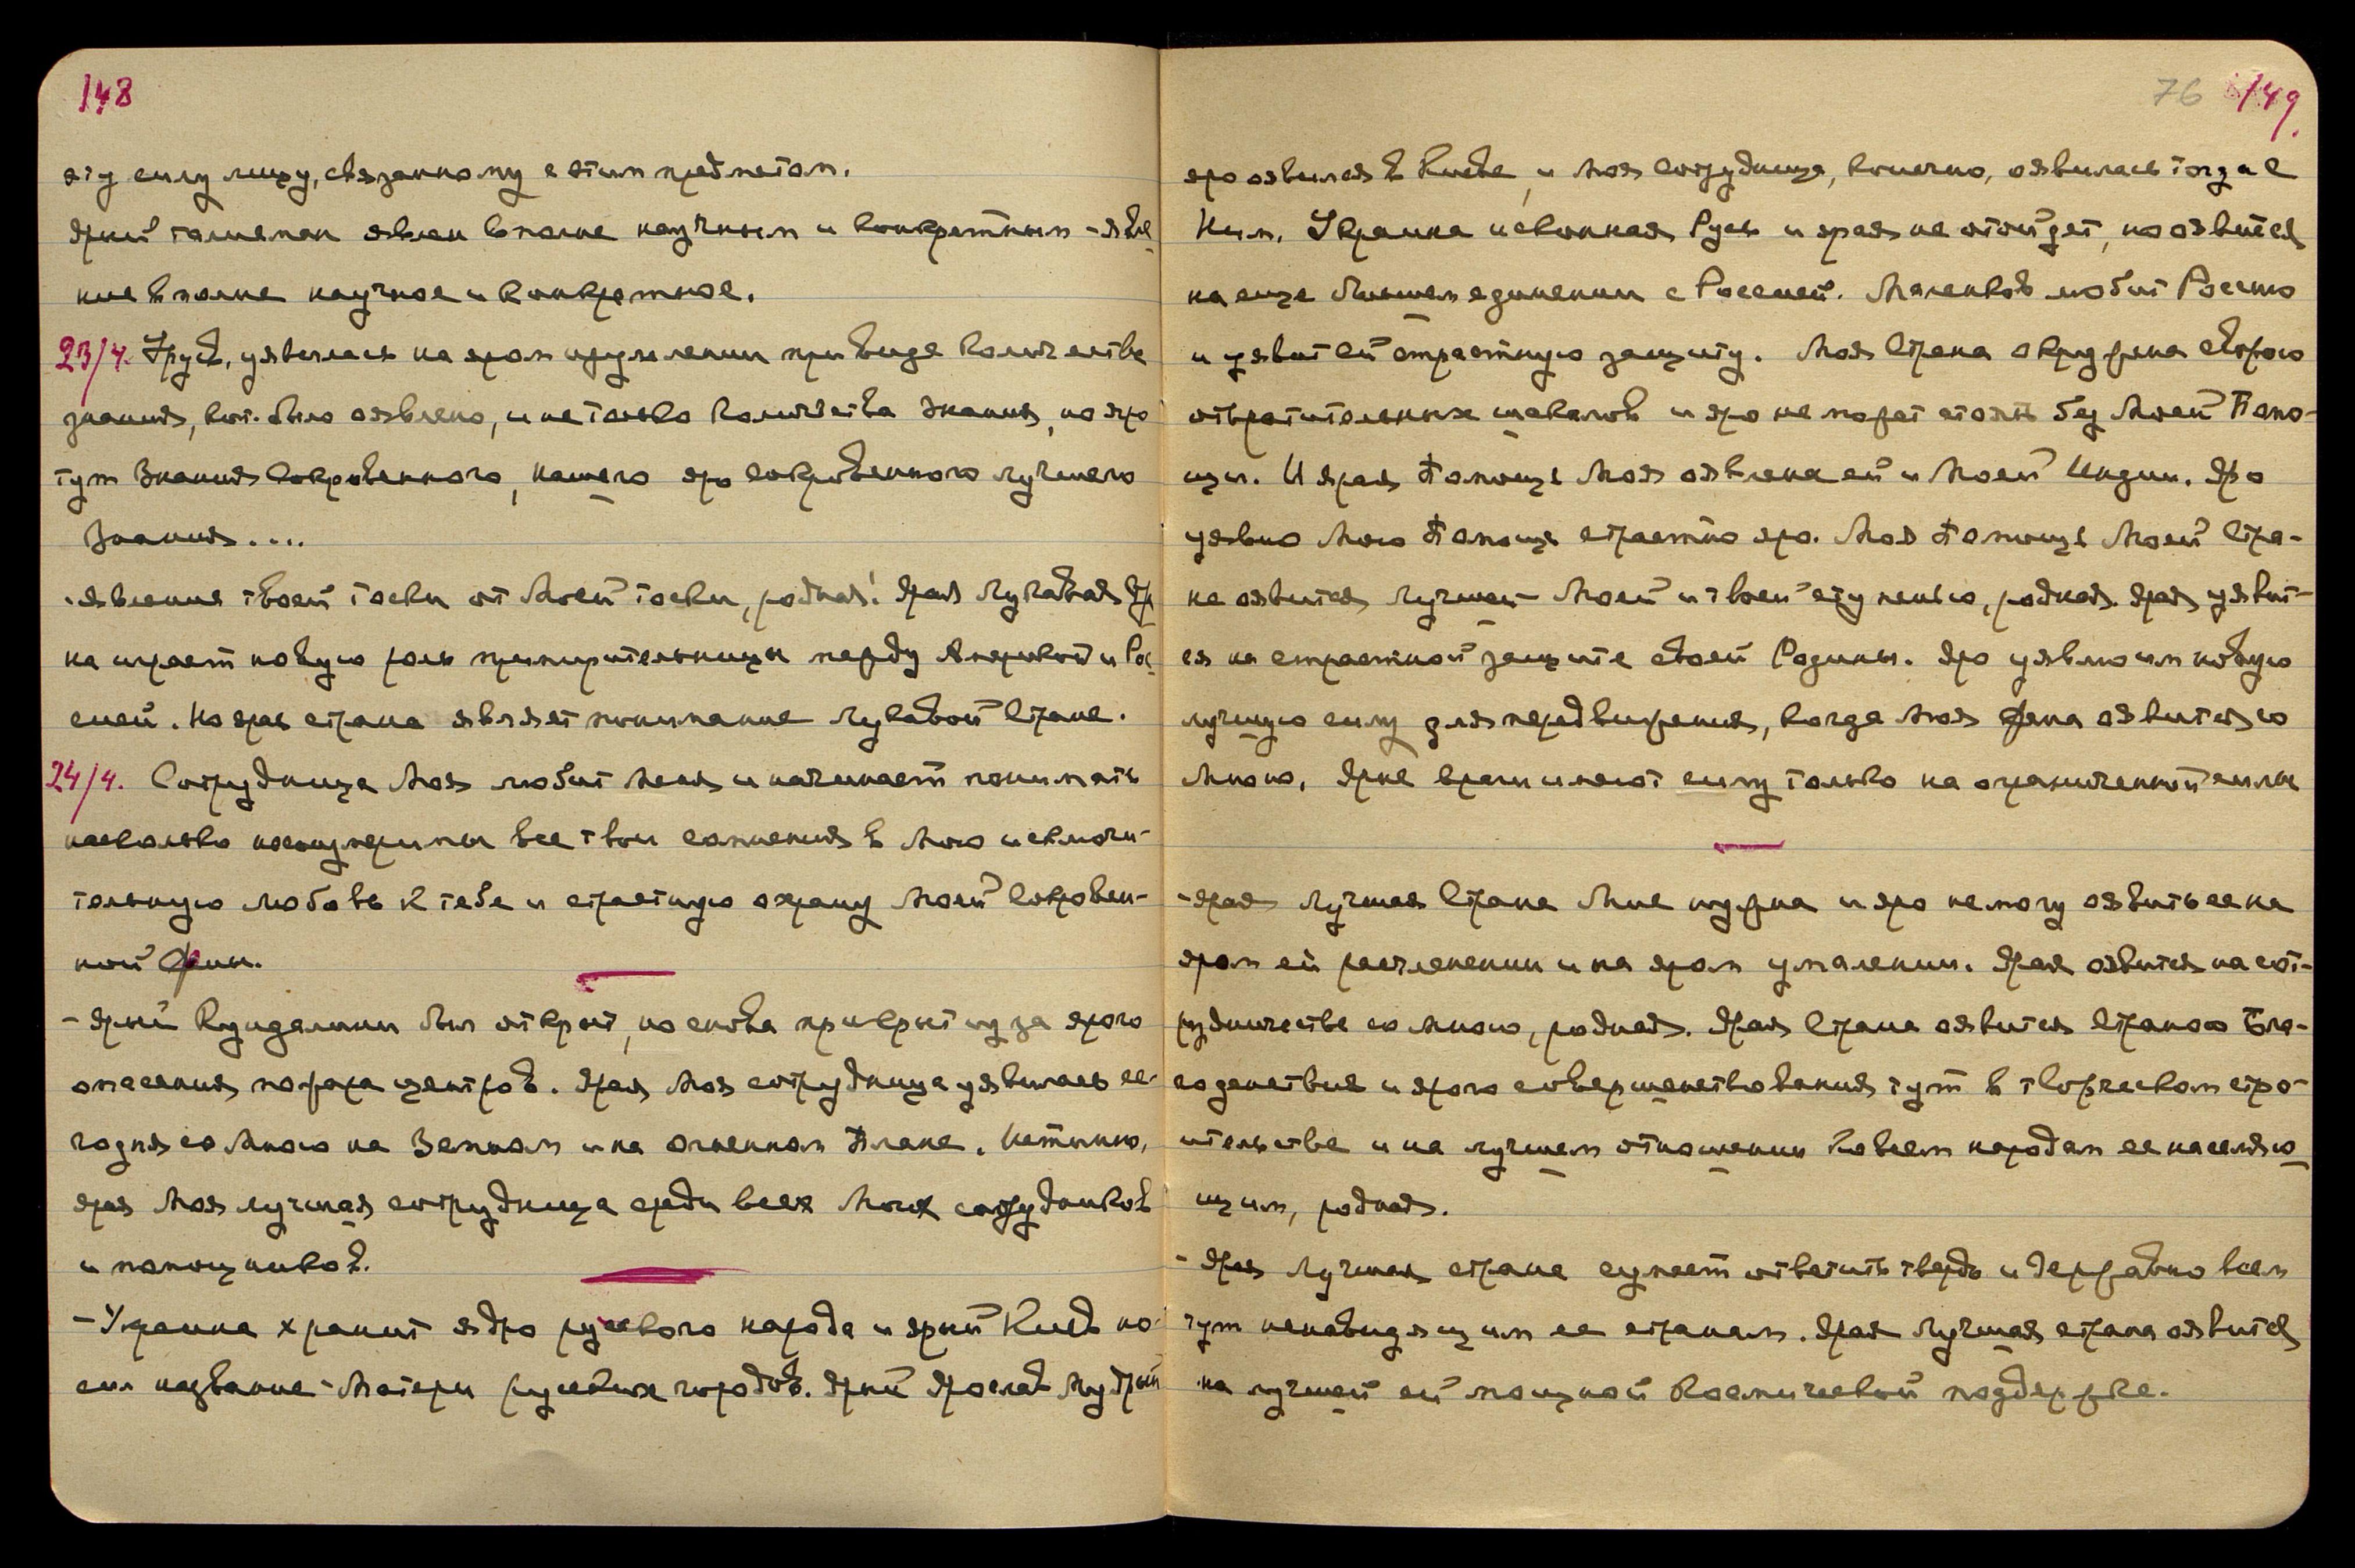 148
эту силу лицу, связанному с этим предметом.
Ярый талисман явлен вполне научным и конкретным - явле-
ние вполне научное и конкретное.
23/4. Груст. уявилась на яром изумлении при виде количества
знания, кот. было оявлено, и не только количества знания, но яро
тут Знания Сокровенного, нашего яро сокровенного лучшего
Знания....
- явление твоей тоски от Моей тоски, родная! Ярая Лукавая Стра-
на играет новую роль примирительницы между Америкой и Рос-
сией. Но ярая страна являет понимание Лукавой Стране.
24/4. Сотрудница Моя любит Меня и начинает понимать
насколько несоизмеримы все твои сомнения в Мою исключи-
тельную любовь к тебе и страстную охрану Моей Сокровен-
ной Жены.
- Ярый Кундалини был открыт, но снова прикрыт из-за ярого
опасения пожара центров. Ярая Моя сотрудница уявилась се-
годня со Мною на Земном и на огненном Плане. Истинно,
ярая Моя лучшая сотрудница среди всех Моих сотрудников
и помощников.
- Украина хранит ядро русского народа и ярый Киев но-
сил название - Матери русских городов. Ярый Ярослав Мудрый
76 149.
яро оявился в Киеве, и Моя сотрудница, конечно, оявилась тогда с
Ним. Украина исконная Русь и ярая не отойдет, но оявится
на еще большем единении с Россией. Маленков любит Россию
и уявит ей страстную защиту. Моя Страна окружена сворою
отвратительных шакалов и яро не может стоять без Моей Помо-
щи. И ярая Помощь Моя оявлена ей и Моей Индии. Яро
уявлю Мою Помощь страстно яро. Моя Помощь Моей Стра-
не оявится лучшей Моей и твоей ступенью, родная. Ярая уявит-
ся на страстной защите своей Родины. Яро уявлю им новую
лучшую силу для передвижения, когда Моя Жена оявится со
Мною. Ярые враги имеют силу только на ограниченной силы
- ярая Лучшая Страна Мне нужна и яро не могу оявить ее на
яром ей расчленении и на яром умалении. Ярая оявится на сот-
рудничестве со Мною, родная. Ярая Страна оявится Страною Бла-
годенствия и ярого совершенствования тут в творческом стро-
ительстве и на лучшем отношении ко всем народам ее населяю-
щим, родная.
- Ярая Лучшая страна сумеет ответить твердо и державно всем
тут ненавидящим ее странам. Ярая Лучшая страна оявится
на лучшей ей мощной Космической поддержке.